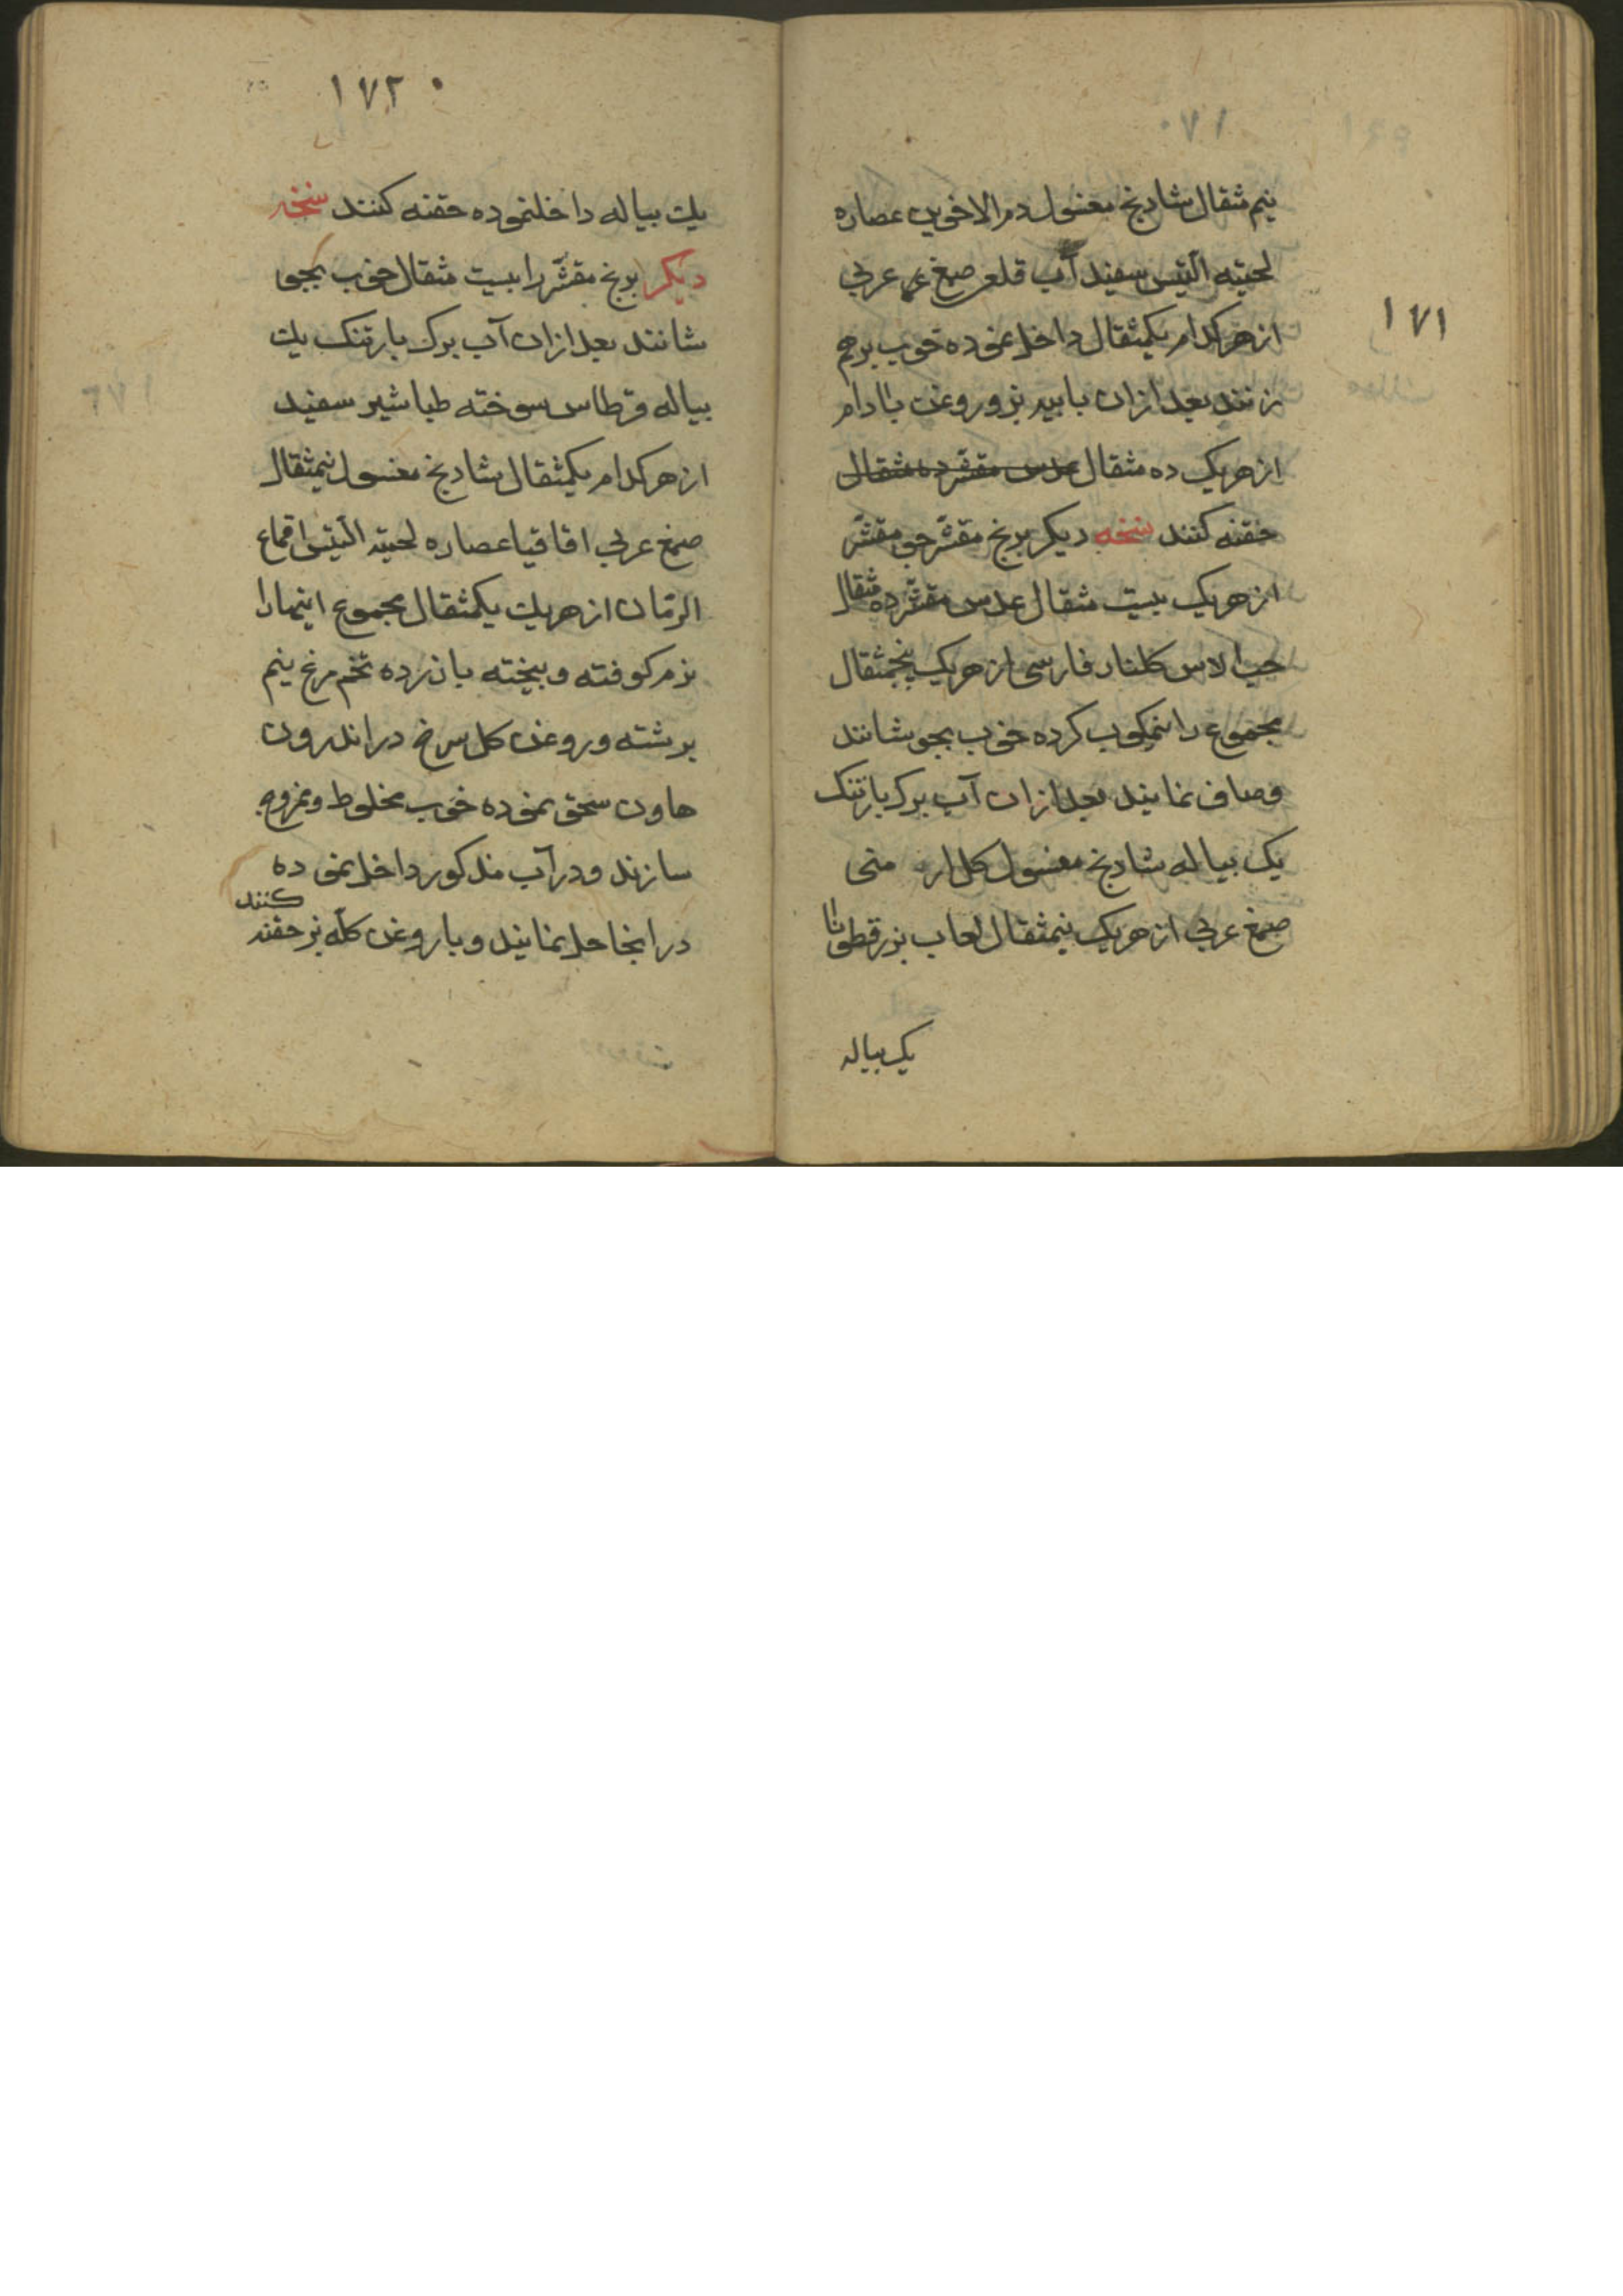 ۱۷۱
نیم مثقال شادنج مغسول دم الاخوین عصاره
لحیته التیس سفید آب قلعی صمغ عربی
از هر کدام یکمثقال داخل نموده خوب برهم
زنند بعد ازان با پیه بز و روغن بادام
از هریک ده مثقال عدس مقشر ده مثقال
حقنه کنند نسخه دیکر برنج مقشّر جو مقشّر
از هریک بیست مثقال عدس مقشّر ده مثقال
حب الاس کلنار فارسی از هریک پنجمثقال
مجموع را نیمکوب کرده خوب بجوشانند
و صاف نمایند بعد ازان آب برک بارتنک
یک پیاله شادنج مغسول کل ارمنی
صمغ عربی از هریک نیمثقال لعاب بزرقطونا
یک پیاله
۱۷۲
یک پیاله داخلنموده حقنه کنند نسخه
دیکر برنج مقشّر را بیست مثقال خوب بجو
شانند بعد ازان آب برک بارتنک یک
پیاله قرطاس سوخته طباشیر سفید
از هر کدام یکمثقال شادنج مغسول نیمثقال
صمغ عربی اقاقیا عصاره لحیته التیس اقماع
الرمّان از هریک یکمثقال مجموع اینها را
نرم کوفته و بیخته با زرده تخم مرغ نیم
برشته و روغن کل سرخ در اندرون
هاون سحق نموده خوب مخلوط و ممزوج
سازند و در آب مذکور داخل نموده
در انجا حل نمایند و با روغن کلّه بز حقنه
کنند